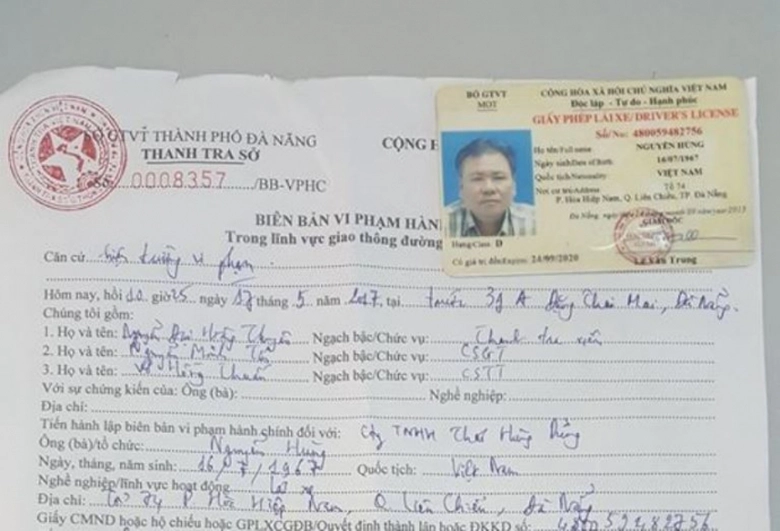 SỞ GTVT THÀNH PHỐ ĐÀ NẴNG
THANH TRA SỞ
Số: 0008357 /BB-VPHC
CỘNG H
BIÊN BẢN VI PHẠM HÀNH
Trong lĩnh vực giao thông đường
Căn cứ hiện trường vi phạm
Hôm nay, hồi 10 giờ 25 ngày 17 tháng 5 năm 2017, tại trước 39 A Đặng Thai Mai, Đà Nẵng.
Chúng tôi gồm:
1. Họ và tên: Nguyễn Thuyên Ngạch bậc/Chức vụ: Thanh tra viên
2. Họ và tên: Nguyễn Minh Ngạch bậc/Chức vụ: CSGT
3. Họ và tên: Hồng Ngạch bậc/Chức vụ: CSTT
Với sự chứng kiến của: Ông (bà): Nghề nghiệp:
Địa chỉ:
Tiến hành lập biên bản vi phạm hành chính đối với: Cty TNHH Hùng
Ông (bà)/tổ chức: Nguyễn Hùng
Ngày, tháng, năm sinh: 16/7/1967 Quốc tịch: Việt Nam
Nghề nghiệp/lĩnh vực hoạt động: Lái xe
Địa chỉ: Tổ 74 P Hòa Hiệp Nam, Q Liên Chiểu, Đà Nẵng
Giấy CMND hoặc hộ chiếu hoặc GPLXCGĐB/Quyết định thành lập hoặc ĐKKD số:
BỘ GTVT
MOT
CỘNG HÒA XÃ HỘI CHỦ NGHĨA VIỆT NAM
Độc lập - Tự do - Hạnh phúc
GIẤY PHÉP LÁI XE/DRIVER'S LICENSE
Số/No: 480059482756
Họ tên/Full name NGUYỄN HÙNG
Ngày sinh/Date of Birth 16/07/1967
Quốc tịch/Nationality VIỆT NAM
Nơi cư trú/Address Tổ 74
P. Hòa Hiệp Nam, Q. Liên Chiểu, TP. Đà Nẵng
Đà Nẵng,
GIÁM ĐỐC
Hạng/Class D
Có giá trị đến/Expires 24/09/2020
Lê Văn Trung